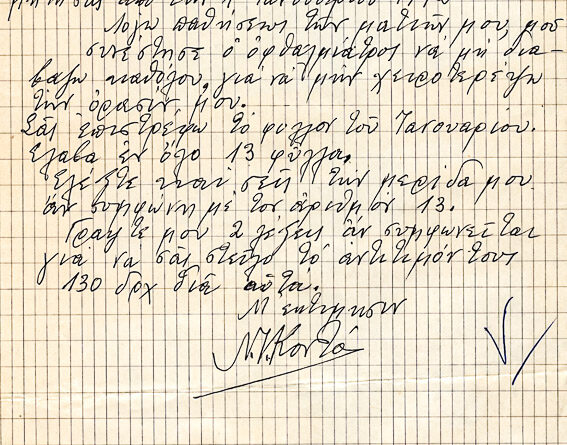 Λόγω παθήσεως τῶν ματιῶν μου, μοῦ
συνέστησε ὁ ὀφθαλμίατρος νὰ μὴ δια-
βάζω καθόλου, γιὰ νὰ μὴν χειροτερέψω
τὴν ὅρασίν μου.
Σᾶς ἐπιστρέφω τὸ φύλλον τοῦ Ἰανουαρίου.
Ἔλαβα ἐν ὅλο 13 φῦλλα.
Ἐλέξτε καὶ σεῖς τὴν μερίδα μου
ἂν συμφώνη μὲ τὸν ἀριθμὸν 13.
Γράψτε μου 2 λέξεις ἂν συμφωνεῖται
γιὰ νὰ σᾶς στείλω τὸ ἀντιτιμόν τους
130 δρχ διὰ αὐτά.
Μ ἐκτίμησιν
Ν.Ι. Κοντὸ